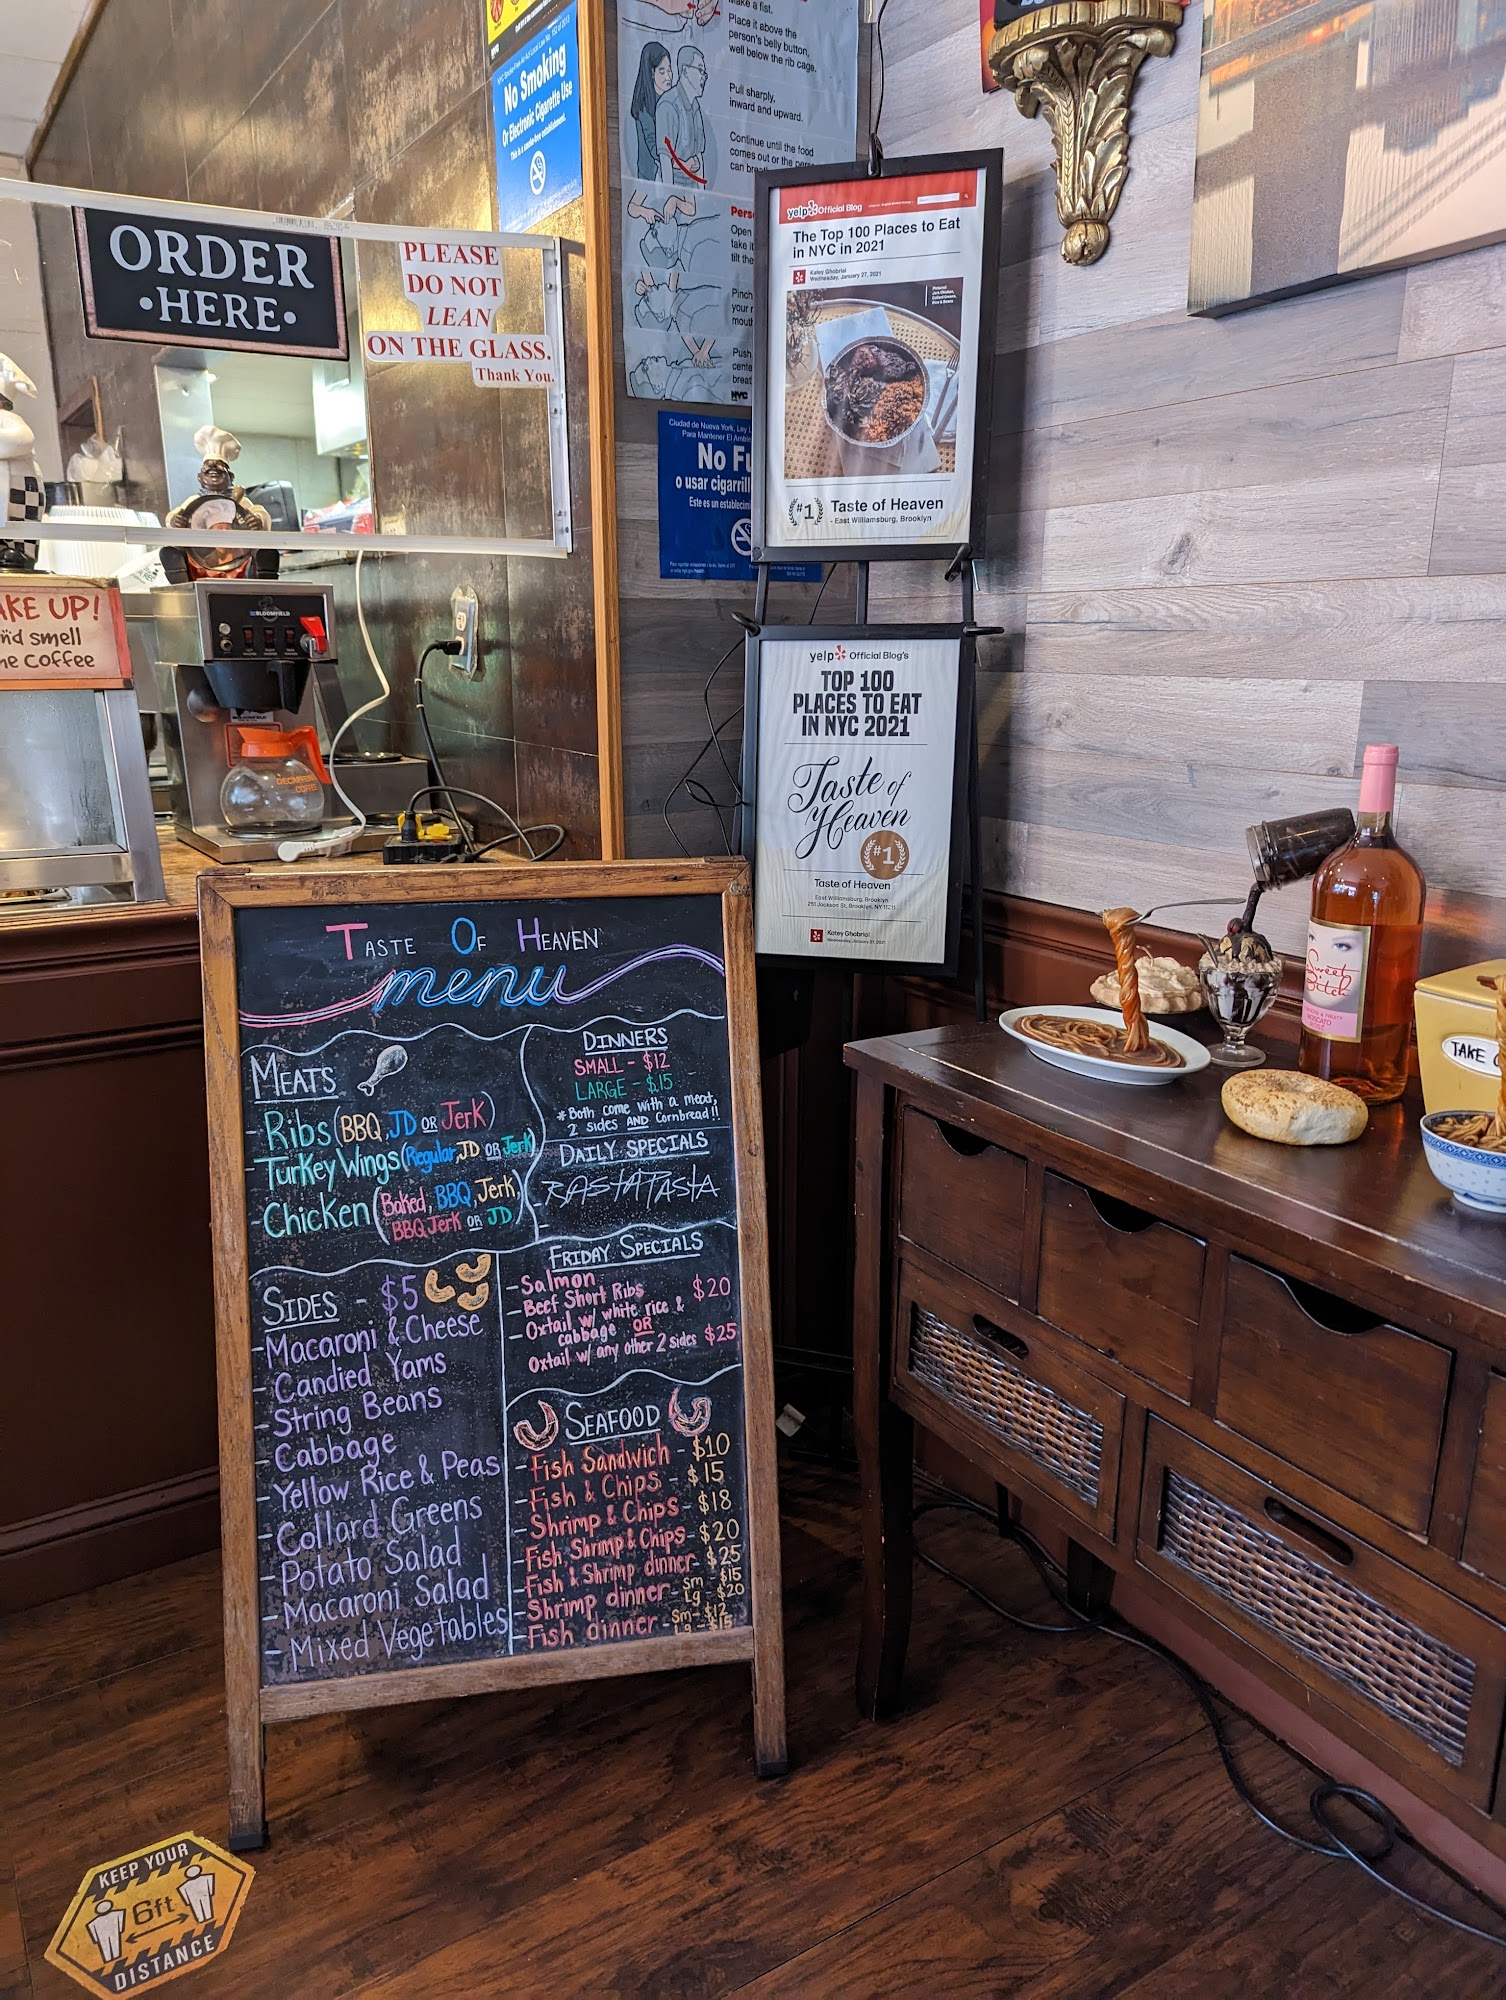 ORDER
•HERE•
PLEASE
DO NOT
LEAN
ON THE GLASS.
Thank You.
No Smoking
Or Electronic Cigarette Use
This is a smoke-free establishment.
Make a fist.
Place it above the
person's belly button,
well below the rib cage.
Pull sharply,
inward and upward.
Continue until the food
comes out or the
can
Open
take it
tilt the
Pinch
your
mouth
Push
NYC
Ciudad de Nueva York, Ley
Para Mantener El
No
o usar
Este es un
yelp Official Blog
The Top 100 Places to Eat
in NYC in 2021
Katey Ghobrial
Wednesday, January 27, 2021
#1 Taste of Heaven
- East Williamsburg, Brooklyn
yelp Official Blog's
TOP 100
PLACES TO EAT
IN NYC 2021
Taste of
Heaven
#1
Taste of Heaven
East Williamsburg, Brooklyn
251 Jackson St, Brooklyn, NY 11211
Katey Ghobrial
Wednesday, January 27, 2021
UP!
smell
Coffee
BLOOMFIELD
DECAFFEINATED
COFFEE
TASTE OF HEAVEN
menu
MEATS
- Ribs (BBQ, JD OR Jerk)
- Turkey Wings (Regular, JD OR Jerk)
- Chicken (Baked, BBQ, Jerk,
BBQ Jerk OR JD)
SIDES - $5
- Macaroni & Cheese
- Candied Yams
- String Beans
- Cabbage
- Yellow Rice & Peas
- Collard Greens
- Potato Salad
- Macaroni Salad
- Mixed Vegetables
DINNERS
SMALL - $12
LARGE - $15
* Both come with a meat,
2 sides AND Cornbread!!
DAILY SPECIALS
- RASTA PASTA
-
FRIDAY SPECIALS
- Salmon
- Beef Short Ribs $20
- Oxtail w/ white rice &
cabbage OR
Oxtail w/ any other 2 sides $25
SEAFOOD
- Fish Sandwich - $10
- Fish & Chips - $15
- Shrimp & Chips - $18
- Fish, Shrimp & Chips - $20
- Fish & Shrimp dinner - $25
- Shrimp dinner - Sm - $15
Lg - $20
- Fish dinner - Sm - $12
Lg - $15
Sweet
Bitch
MOSCATO
TAKE
KEEP YOUR
6ft
DISTANCE